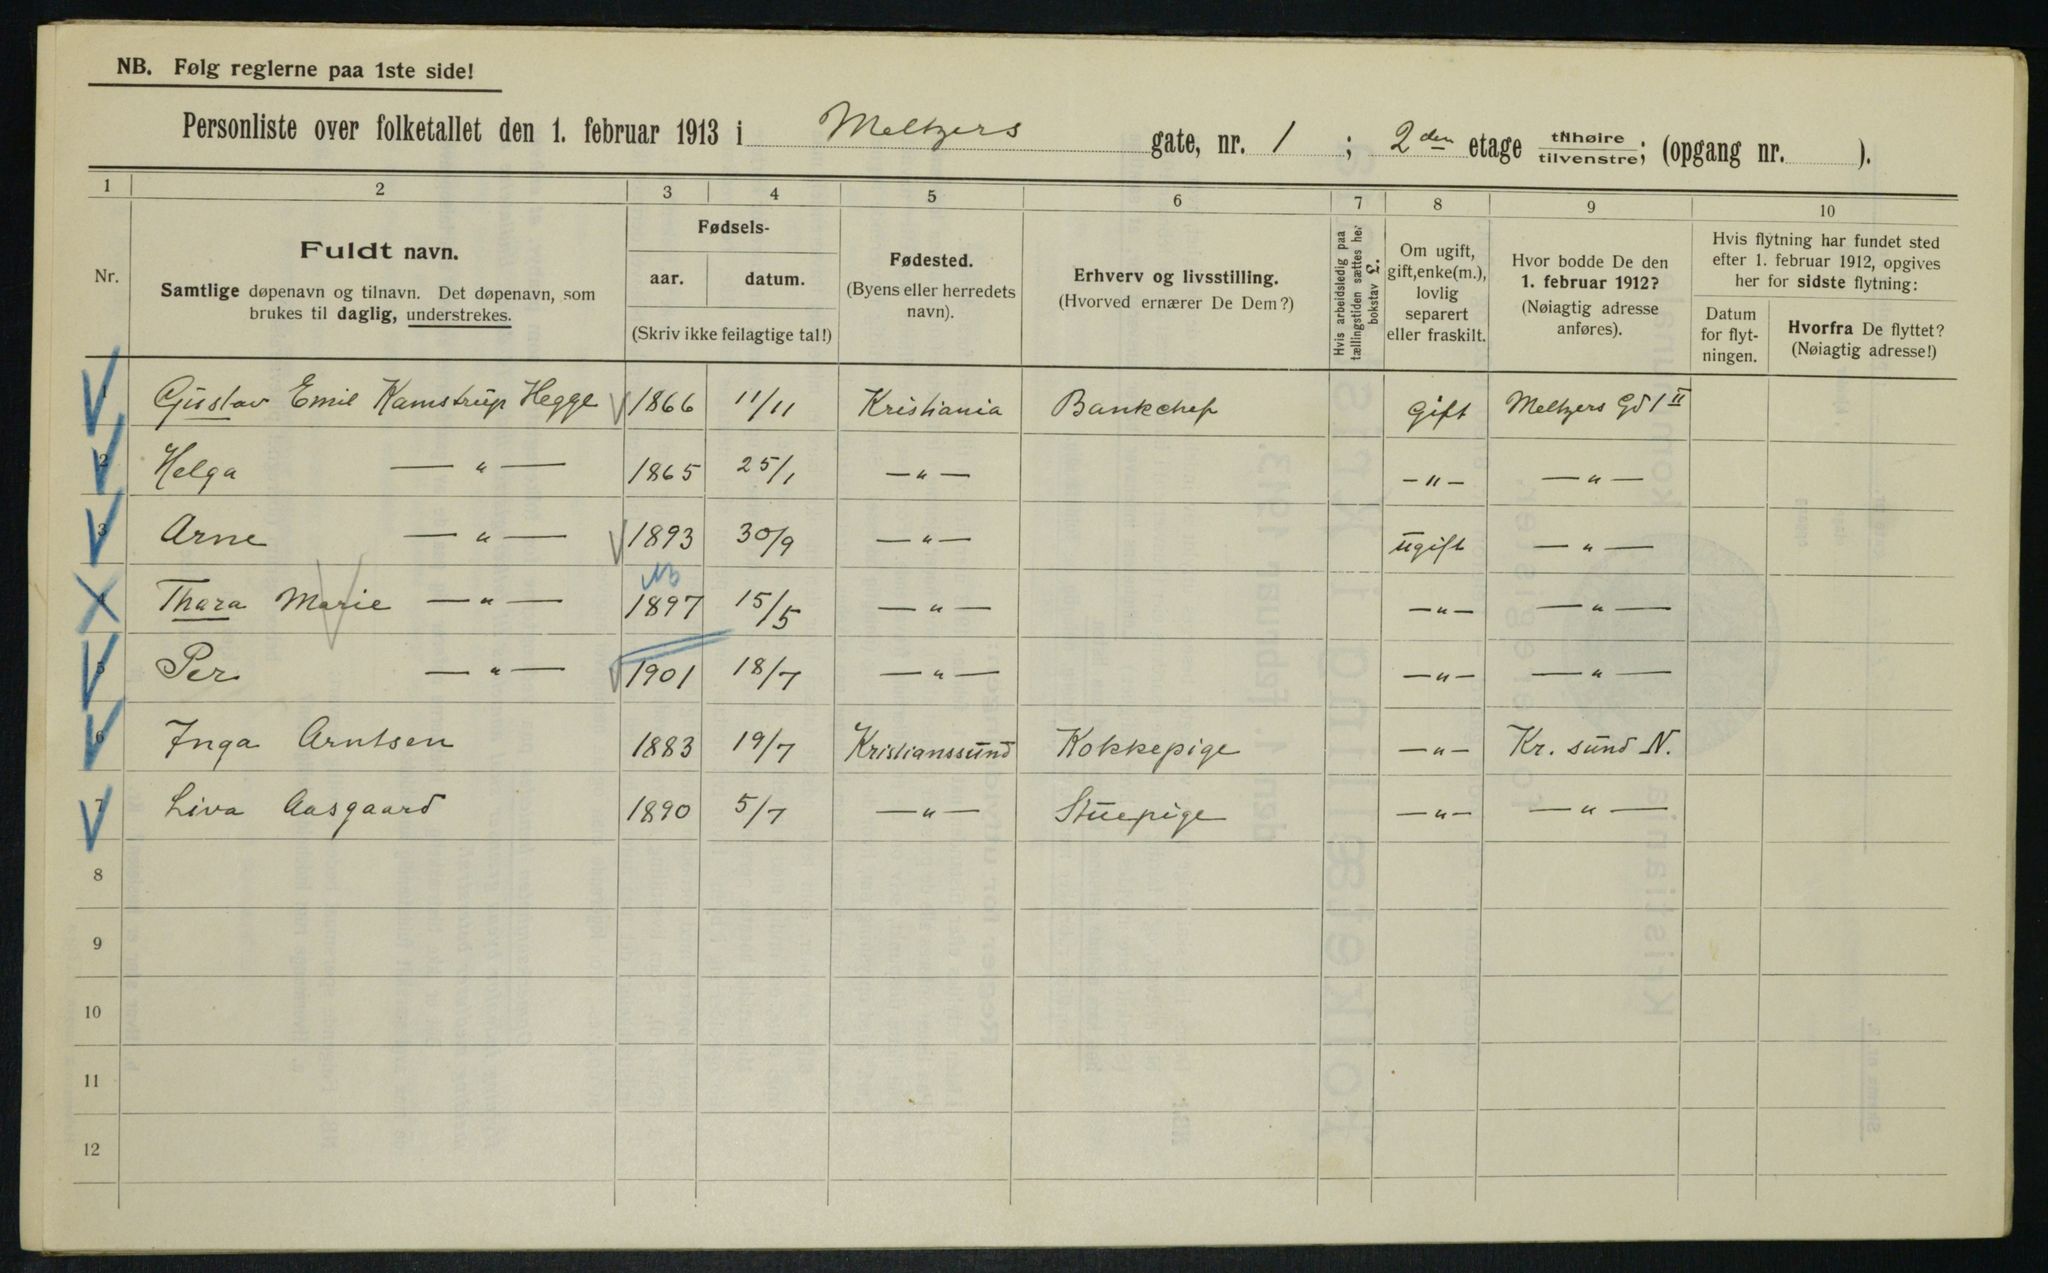 NB. Følg reglerne paa 1ste side!
Personliste over folketallet den 1. februar 1913 i Meltzers gate, nr. 1 ; 2den etage tilhøire tilvenstre; (opgang nr. ).
1 2 3 4 5 6 7 8 9 10
Nr.
Fuldt navn.
Samtlige døpenavn og tilnavn. Det døpenavn, som
brukes til daglig, understrekes.
Fødsels-
aar. datum.
(Skriv ikke feilagtige tal!)
Fødested.
(Byens eller herredets
navn).
Erhverv og livsstilling.
(Hvorved ernærer De Dem?)
Hvis arbeidsledig paa
tællingstiden sættes her
bokstav L.
Om ugift,
gift, enke(m.),
lovlig
separert
eller fraskilt.
Hvor bodde De den
1. februar 1912?
(Nøiagtig adresse
anføres).
Hvis flytning har fundet sted
efter 1. februar 1912, opgives
her for sidste flytning:
Datum
for flyt-
ningen.
Hvorfra De flyttet?
(Nøiagtig adresse!)
1 Gustav Emil Kamstrup Hegge 1866 11/11 Kristiania Bankchef Gift Meltzers Gd 1 II
2 Helga — " — 1865 25/1 — " — — " — — " —
3 Arne — " — 1893 30/9 — " — ugift — " —
NB
4 Thara Marie — " — 1897 15/5 — " — — " — — " —
5 Per — " — 1901 18/7 — " — — " — — " —
6 Inga Arntsen 1883 19/7 Kristianssund Kokkepige — " — Kr. sund N.
7 Liva Aasgaard 1890 5/7 — " — Stuepige — " — — " —
8
9
10
11
12